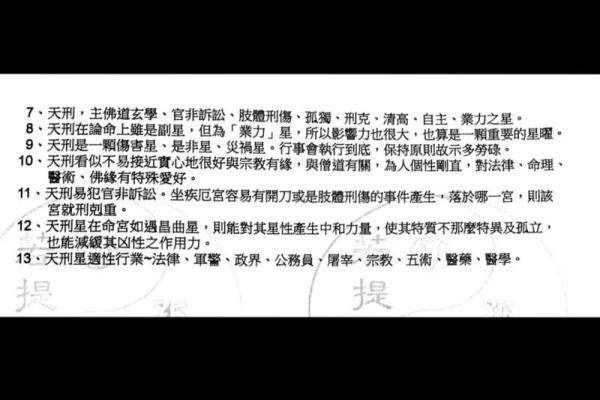 7、天刑，主佛道玄學、官非訴訟、肢體刑傷、孤獨、刑克、清高、自主、業力之星。
8、天刑在論命上雖是副星，但為「業力」星，所以影響力也很大，也算是一顆重要的星曜。
9、天刑是一顆傷害星、是非星、災禍星。行事會執行到底，保持原則故示多勞碌。
10、天刑看似不易接近實心地很好與宗教有緣，與僧道有關，為人個性剛直，對法律、命理、
醫術、佛緣有特殊愛好。
11、天刑易犯官非訴訟。坐疾厄宮容易有開刀或是肢體刑傷的事件產生，落於哪一宮，則該
宮就刑剋重。
12、天刑星在命宮如遇昌曲星，則能對其星性產生中和力量，使其特質不那麼特異及孤立，
也能減緩其凶性之作用力。
13、天刑星適性行業~法律、軍警、政界、公務員、屠宰、宗教、五術、醫藥、醫學。
菩提
菩提